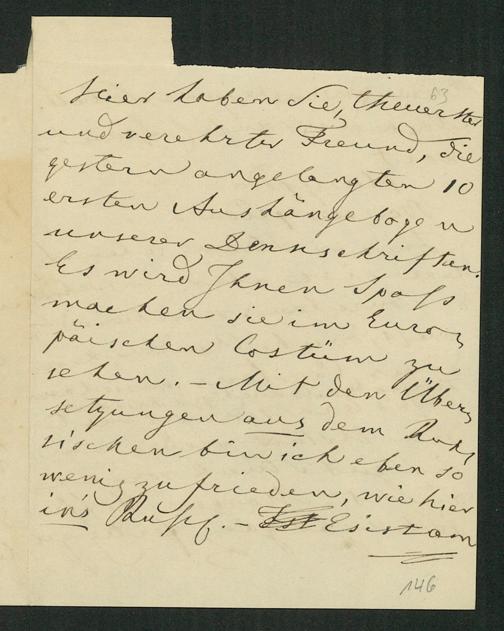 63
Hier haben Sie, theuerster
und verehrter Freund, die
gestern angelangten 10
ersten Aushängebogen
unserer Denkschriften.
Es wird Ihnen Spaß
machen sie im Euro-
päischen Costüm zu
sehen. – Mit den Über-
setzungen aus dem Rus-
sischen bin ich eben so
wenig zufrieden, wie hier
in's Russ. – Es ist am
146